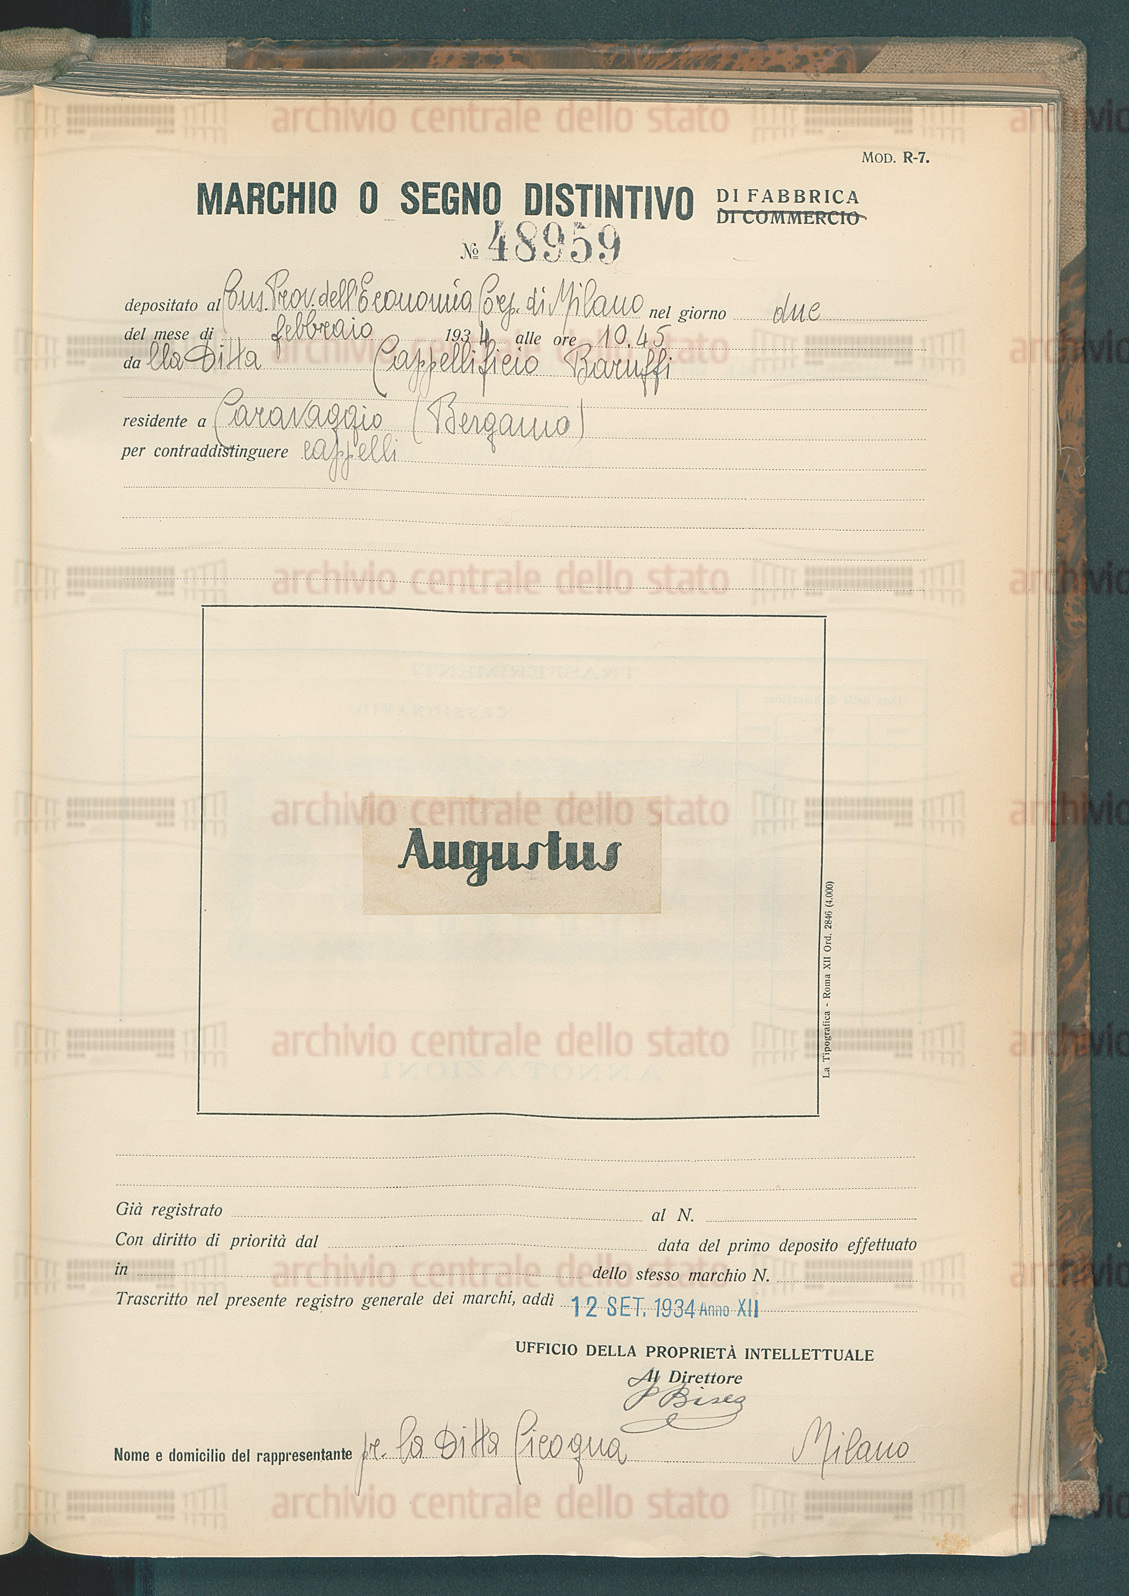 MOD. R-7.
MARCHIO O SEGNO DISTINTIVO DI FABBRICA
DI COMMERCIO
№ 48959
depositato al Cons. Prov. dell'Economia Corp. di Milano nel giorno due
del mese di febbraio 1934 alle ore 10.45
da lla Ditta Cappellificio Baruffi
residente a Caravaggio (Bergamo)
per contraddistinguere cappelli
Augustus
La Tipografica - Roma XII Ord. 2846 (4.000)
Già registrato al N.
Con diritto di priorità dal data del primo deposito effettuato
in dello stesso marchio N.
Trascritto nel presente registro generale dei marchi, addì 12 SET. 1934 Anno XII
UFFICIO DELLA PROPRIETÀ INTELLETTUALE
Il Direttore
Nome e domicilio del rappresentante pr. la Ditta Cicogna Milano
archivio centrale dello stato